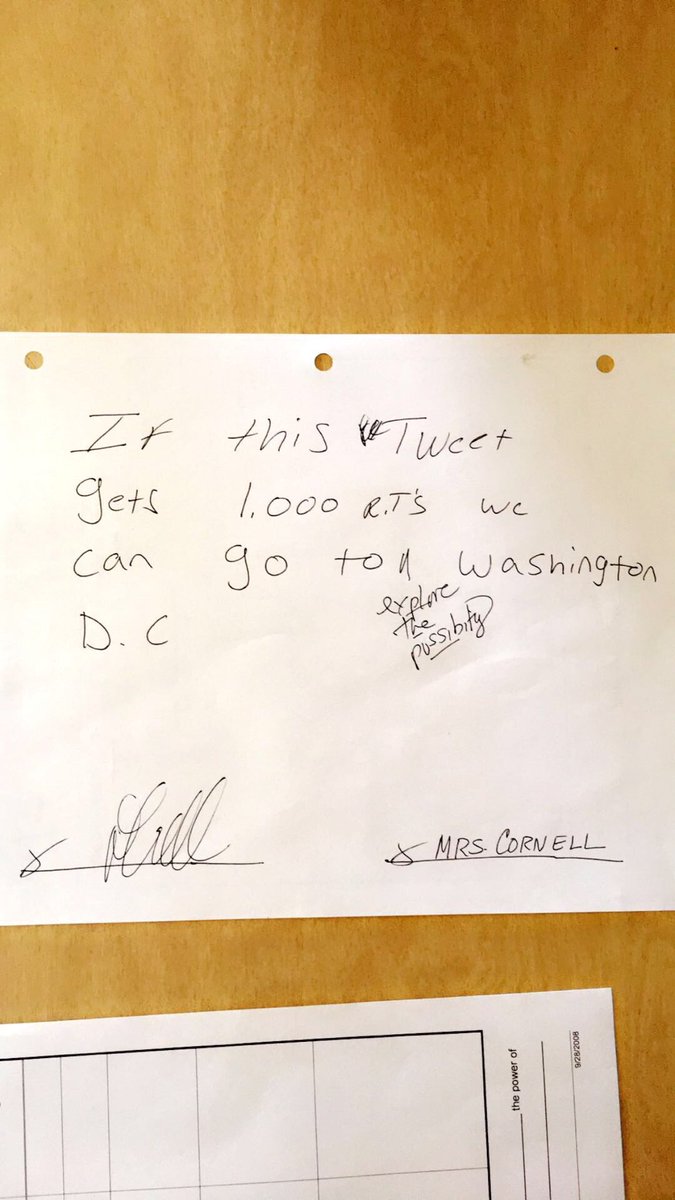 If this Tweet
gets 1.000 R.T's we
can go to Washington
explore
the
possibity
D.C
x
x MRS. CORNELL
the power of
9/28/2008